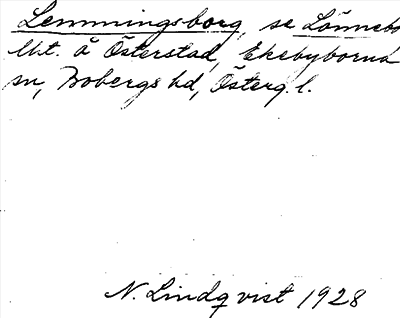 Lemmingsborg, se Lönnebo
lht. å Österstad, Ekebyborna
sn, Bobergs hd, Österg. l.
N. Lindqvist 1928